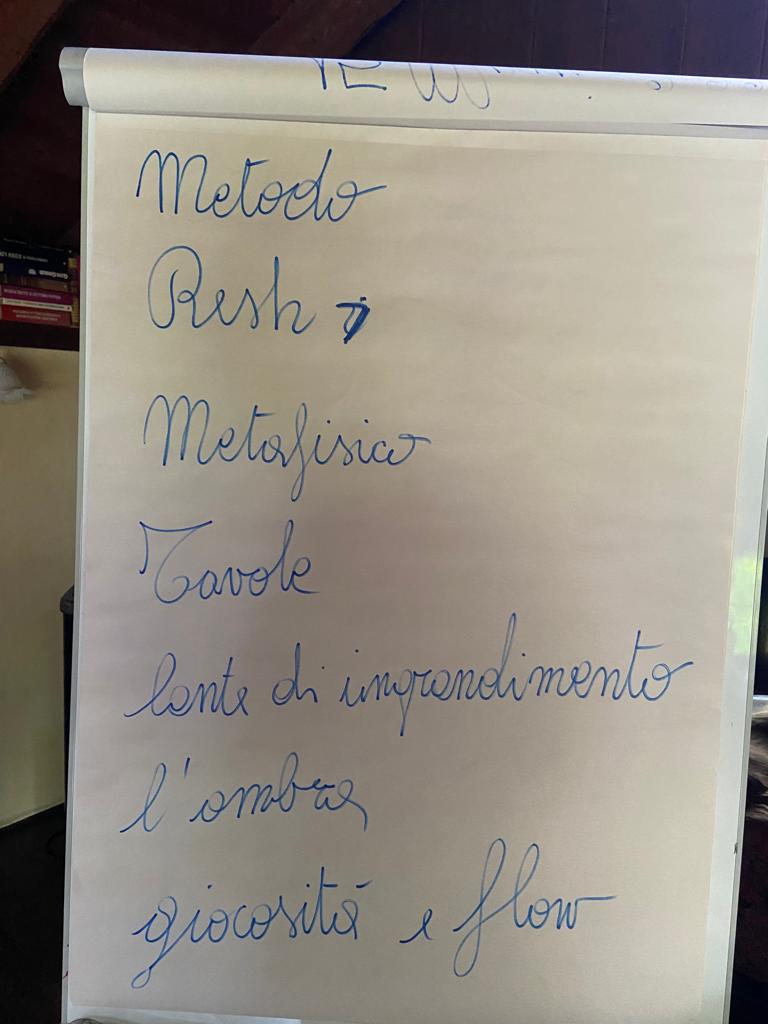 Metodo
Resh
Metafisico
Tavole
lente di ingrandimento
l'ombra
giocosità e flow